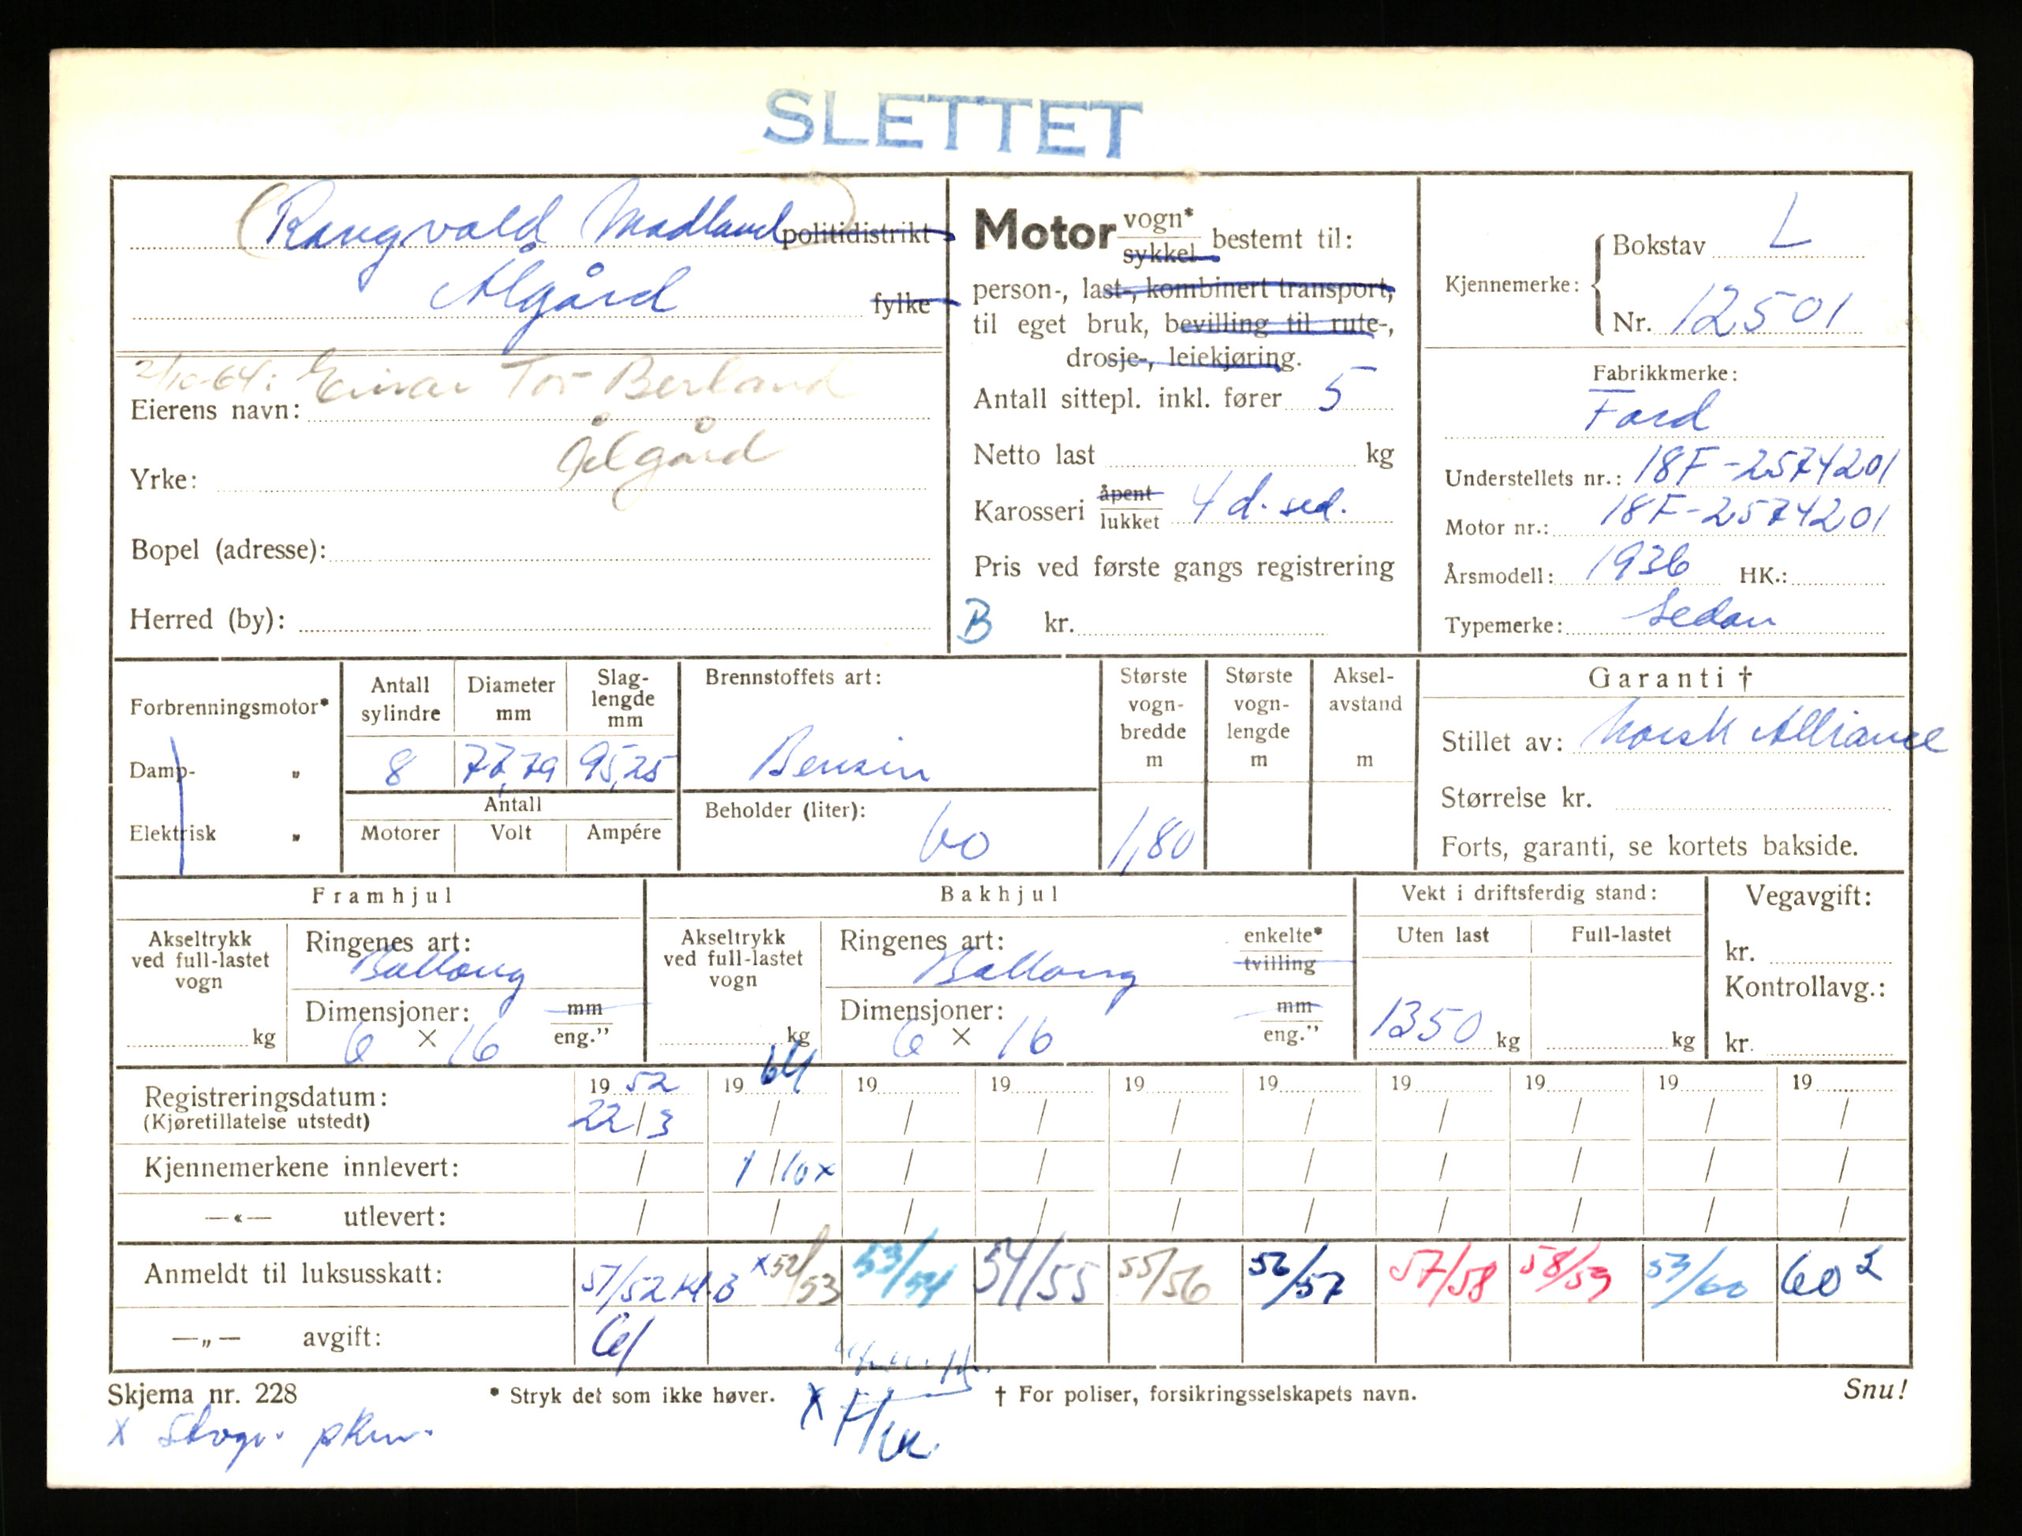 SLETTET
(Rangvald Madland) politidistrikt
Ålgård fylke
2/10-64: Einar Tor Berland
Eierens navn:
Ålgård
Yrke:
Bopel (adresse):
Herred (by):
Motor vogn* sykkel bestemt til:
person-, last-, kombinert transport,
til eget bruk, bevilling til rute-,
drosje-, leiekjøring.
Antall sittepl. inkl. fører 5
Netto last kg
Karosseri åpent lukket 4 d. sed.
Pris ved første gangs registrering
B kr.
Kjennemerke: Bokstav L
Nr. 12501
Fabrikkmerke:
Ford
Understellets nr.: 18F-2574201
Motor nr.: 18F-2574201
Årsmodell: 1936 HK.:
Typemerke: Sedan
Forbrenningsmotor*
Damp- "
Elektrisk "
Antall sylindre
8
Diameter mm
77,79
Slag-lengde mm
95,25
Antall
Motorer Volt Ampére
Brennstoffets art:
Bensin
Beholder (liter):
60
Største vogn-bredde m
1,80
Største vogn-lengde m
Aksel-avstand m
Garanti †
Stillet av: Norsk Alliance
Størrelse kr.
Forts, garanti, se kortets bakside.
Framhjul
Akseltrykk ved full-lastet vogn
kg
Ringenes art:
Ballong
Dimensjoner: mm
6 × 16 eng."
Bakhjul
Akseltrykk ved full-lastet vogn
kg
Ringenes art: enkelte*
Ballong tvilling
Dimensjoner: mm
6 × 16 eng."
Vekt i driftsferdig stand:
Uten last Full-lastet
1350 kg kg
Vegavgift:
kr.
Kontrollavg.:
kr.
Registreringsdatum: 19 52 19 64 19 19 19 19 19 19 19 19
(Kjøretillatelse utstedt) 22/3 / / / / / / / / /
Kjennemerkene innlevert: / 1/10 x / / / / / / / /
—«— utlevert: / / / / / / / / / /
Anmeldt til luksusskatt: 51/52 Kl. B x 52/53 53/54 54/55 55/56 56/57 57/58 58/59 59/60 60 2
—„— avgift: 61
Skjema nr. 228 * Stryk det som ikke høver. † For poliser, forsikringsselskapets navn. Snu!
x pkm.
x